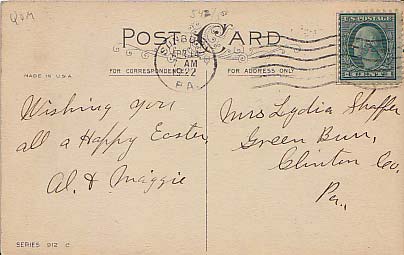 POST CARD
FOR CORRESPONDENCE
FOR ADDRESS ONLY
MADE IN U.S.A.
AM
1922
PA.
U.S. POSTAGE
Wishing you
all a Happy Easter,
Al. & Maggie
Mrs Lydia Shaffer
Green Burr,
Clinton Co.
Pa.,
SERIES 912 C